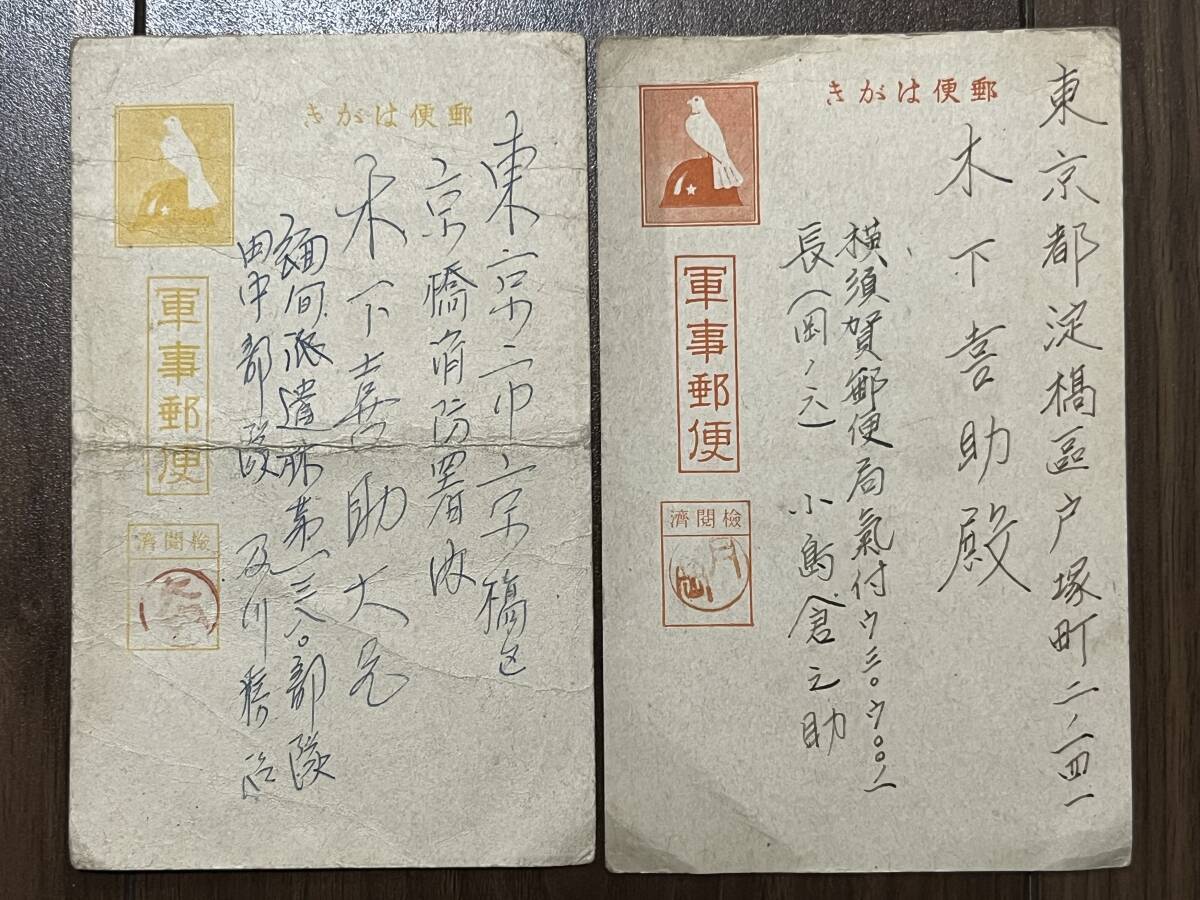 郵便はがき
東京都淀橋區戸塚町二ノ二四一
木下喜助殿
横須賀郵便局氣付ウ三〇ウ〇〇ノ
小島倉之助
軍事郵便
檢閲濟
郵便はがき
東京市京橋区
京橋消防署内
木下喜助大兄
緬甸派遣森第一三八〇部隊
田中部隊
及川
軍事郵便
檢閲濟